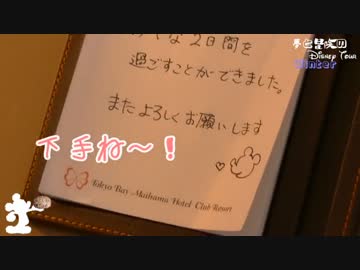 夢と魔法の
Disney Tour
Winter
な2日間を
過ごすことができました。
またよろしくお願いします
下手ね～！
Tokyo Bay Maihama Hotel Club Resort